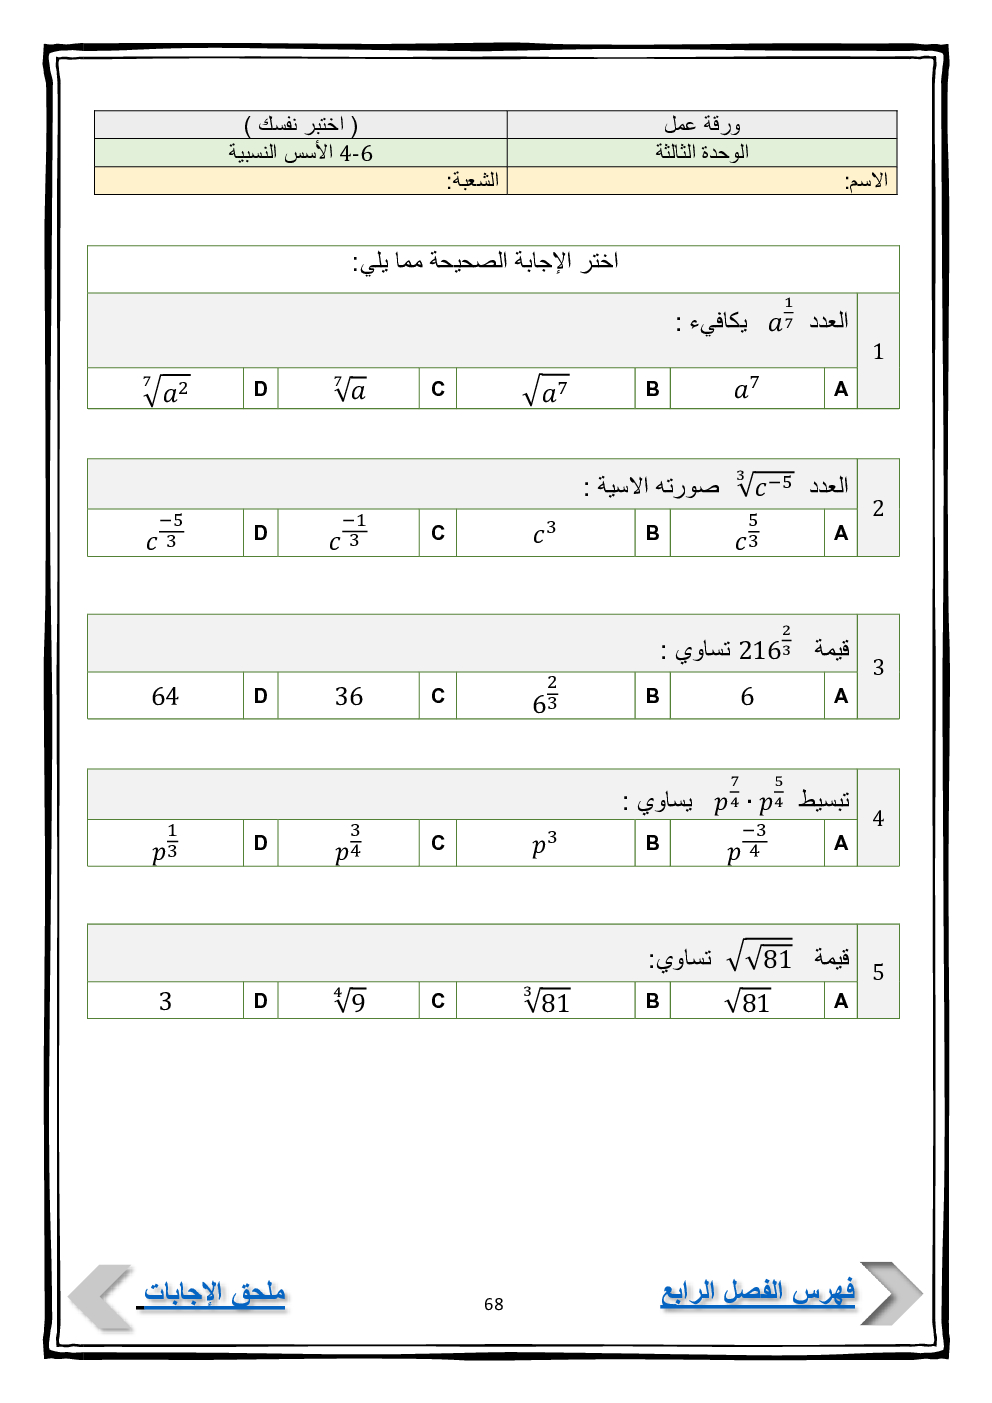 ورقة عمل ( اختبر نفسك )
الوحدة الثالثة 4-6 الأسس النسبية
الاسم: الشعبة:
اختر الإجابة الصحيحة مما يلي:
1 العدد $a^{\frac{1}{7}}$ يكافيء :
A $a^7$ B $\sqrt{a^7}$ C $\sqrt[7]{a}$ D $\sqrt[7]{a^2}$
2 العدد $\sqrt[3]{c^{-5}}$ صورته الاسية :
A $c^{\frac{5}{3}}$ B $c^3$ C $c^{\frac{-1}{3}}$ D $c^{\frac{-5}{3}}$
3 قيمة $216^{\frac{2}{3}}$ تساوي :
A 6 B $6^{\frac{2}{3}}$ C 36 D 64
4 تبسيط $p^{\frac{7}{4}} \cdot p^{\frac{5}{4}}$ يساوي :
A $p^{\frac{-3}{4}}$ B $p^3$ C $p^{\frac{3}{4}}$ D $p^{\frac{1}{3}}$
5 قيمة $\sqrt{\sqrt{81}}$ تساوي:
A $\sqrt{81}$ B $\sqrt[3]{81}$ C $\sqrt[4]{9}$ D 3
فهرس الفصل الرابع 68 ملحق الإجابات